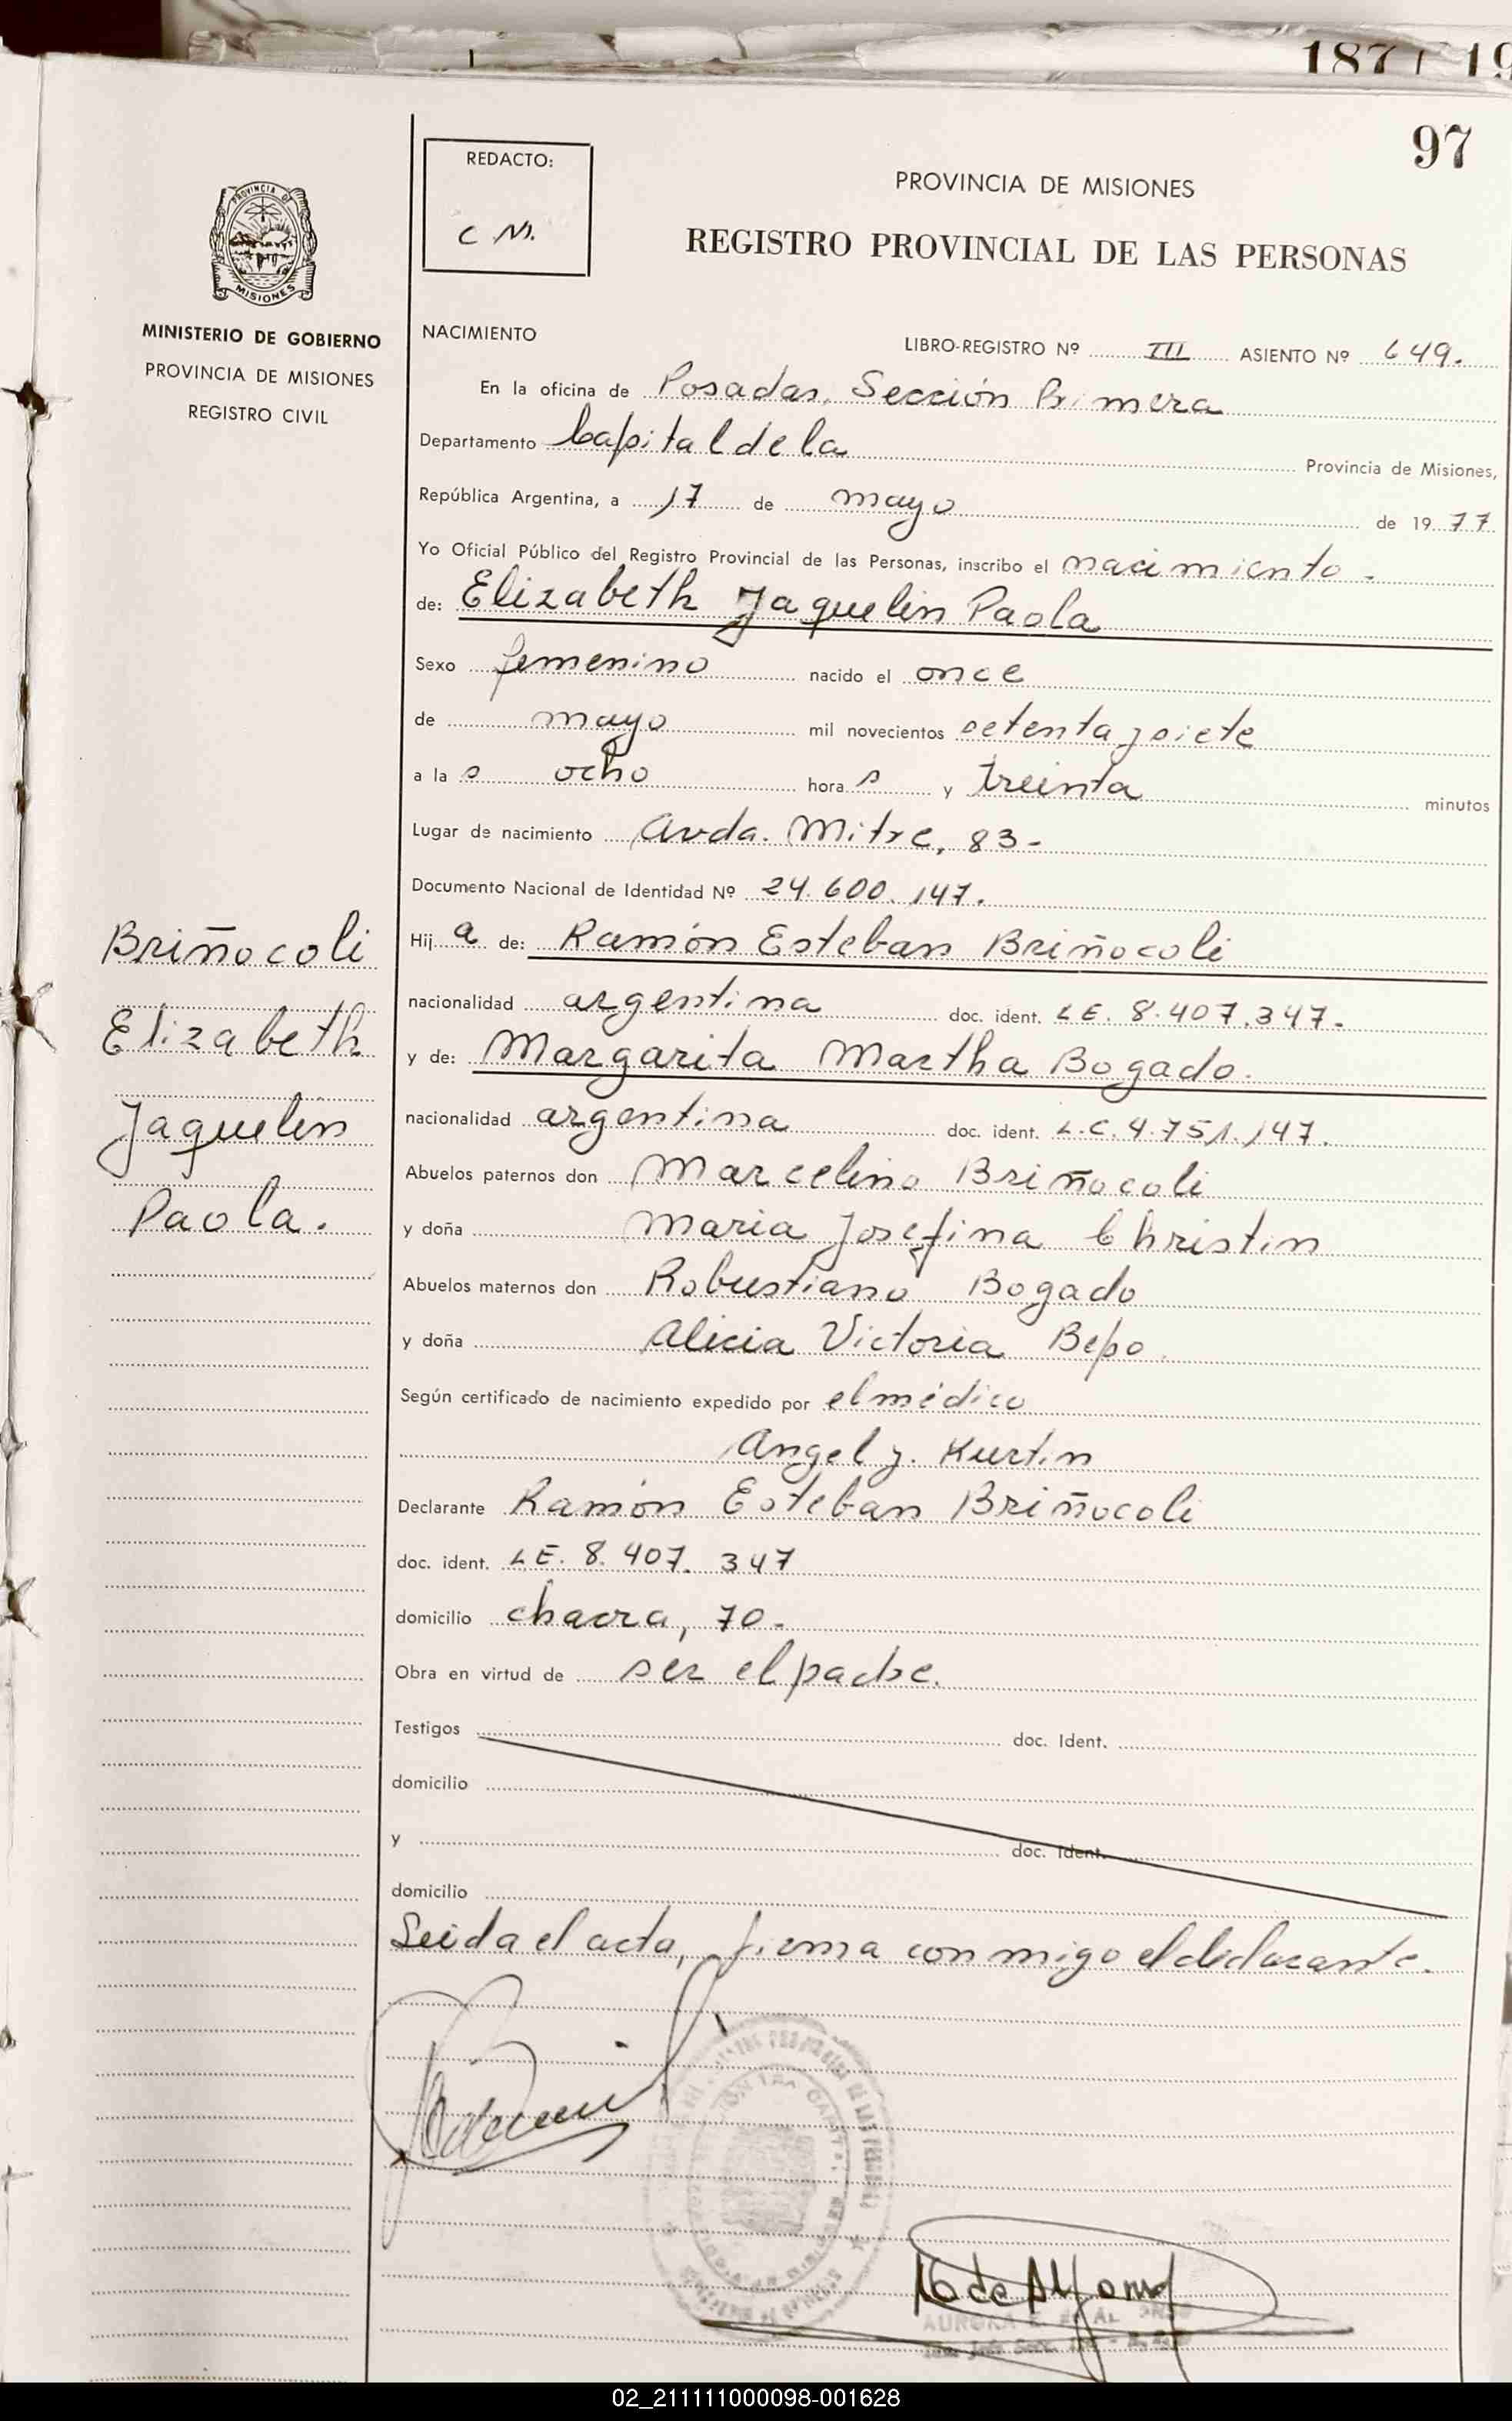 187 19
97
REDACTO:
C M.
PROVINCIA DE MISIONES
REGISTRO PROVINCIAL DE LAS PERSONAS
PROVINCIA DE
MISIONES
MINISTERIO DE GOBIERNO
PROVINCIA DE MISIONES
REGISTRO CIVIL
NACIMIENTO
LIBRO-REGISTRO Nº III ASIENTO Nº 649.
En la oficina de Posadas, Sección Primera
Departamento Capital de la Provincia de Misiones,
República Argentina, a 17 de mayo de 1977
Yo Oficial Público del Registro Provincial de las Personas, inscribo el nacimiento.
de: Elizabeth Jaquelin Paola
Sexo femenino nacido el once
de mayo mil novecientos setenta y siete
a las ocho horas y treinta minutos
Lugar de nacimiento Avda. Mitre, 83-
Documento Nacional de Identidad Nº 24.600.147.
Hija de: Ramón Esteban Briñocoli
nacionalidad argentina doc. ident. LE. 8.407.347-
y de: Margarita Martha Bogado.
nacionalidad argentina doc. ident. L.C. 4.751.147.
Abuelos paternos don Marcelino Briñocoli
y doña Maria Josefina Christin
Abuelos maternos don Robustiano Bogado
y doña Alicia Victoria Bepo.
Según certificado de nacimiento expedido por el médico
Angel J. Kurtin
Declarante Ramón Esteban Briñocoli
doc. ident. LE. 8.407.347
domicilio chacra, 70-
Obra en virtud de ser el padre.
Testigos doc. Ident.
domicilio
y doc. Ident.
domicilio
Leida el acta, firma con migo el declarante.
Briñocoli
Elizabeth
Jaquelin
Paola.
de Alfonso
AURORA E. DE AL
02_211111000098-001628